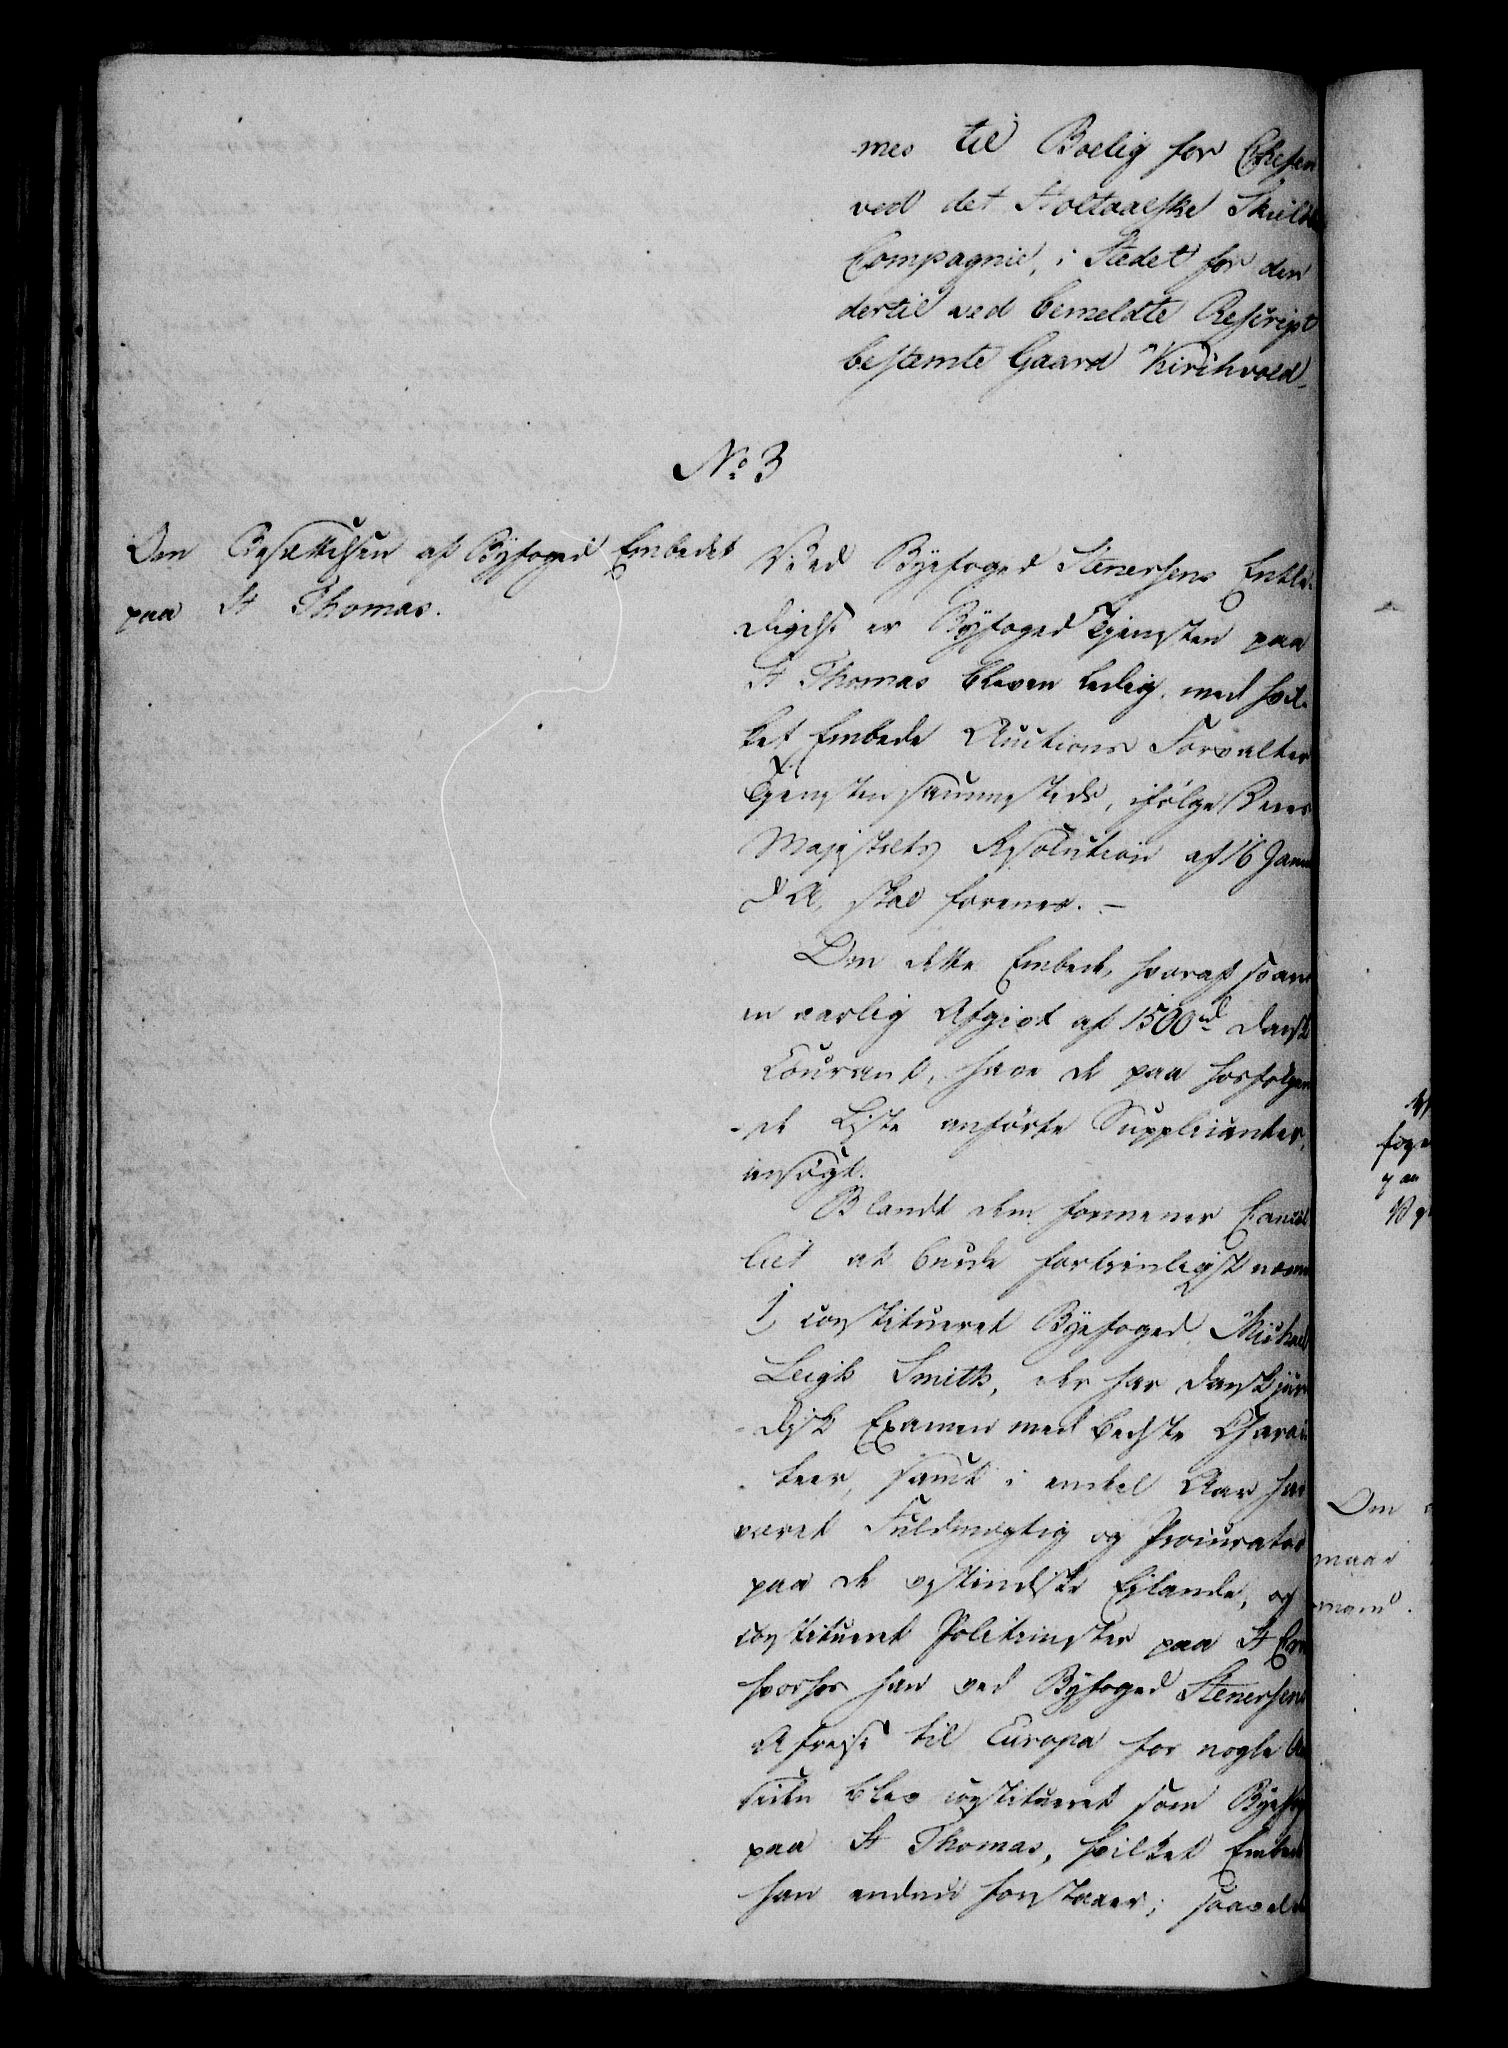 mes til Boelig for Chefen
ved det Holtaalske Skielø
Compagnie, i Stedet for den
dertil ved bemeldte Rescript
bestemte Gaard Kirchvold.
No 3
Om Besættelsen af Byfoged Embedet
paa St Thomas.
Ved Byefoged Stenersens Entle-
digelse er Byfoged Tjenesten paa
St Thomas bleven ledig, med hvil-
ket Embede Auctions Forvalter
Tjenesten sammesteds, ifølge Deres
Majestæts Resolution af 16 Janu
d A, skal forenes. -
Om dette Embede, hvoraf svares
en aarlig Afgivt af 1500 rd dansk
Courant, have de paa hosfølgen
-de Liste anførte Supplicanter,
ansøgt.
Blandt dem formener Cancel
liet at burde fortrinligst nævne
1, constitueret Byefoged Michael
Leigh Smith, der har dansk juri
-disk Examen med bedste Charac
teer, samt i endel Aar har
været Fuldmægtig og Procurator
paa de vestindiske Eilande, og
constitueret Politimester paa St Croix
hvorfor han ved Byfoged Stenersens
Afreise til Europa for nogle Aar
siden blev constitueret som Byefoged
paa St Thomas, hvilket Embede
han endnu forestaaer; saavel
foge
paa
Om
maae
mand.